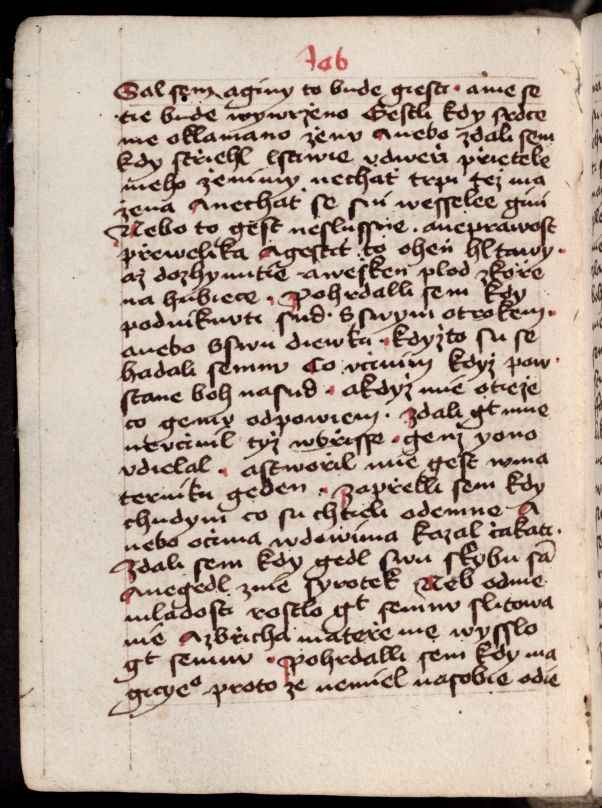 Job
Sal sem aginy to bude giesti · a me se
tie bude wywrzeno Gestli kdy srdce
me oklamano zenu Anebo zdali sem
kdy strziehl lstiwie v dwerzi przietele
meho zeni my nechat trpi tez ma
zena Anechat se sni wesselee gini
Nebo to gest neslussne · aneprawost
przewelika Agestit to ohen hltawy ·
az dozhynutie a wesken plod z korze
na hubiece · Pohrdalli sem kdy
podniknuti sud · s swym otrokem ·
anebo s swu diewku · kdyzto su se
hadali semnu Co vcinim kdyz pow
stane boh nasud · akdyz mne otieze
co gemu odpowiem · zdali gt mne
nevcinil tyz wbrzisse · genz yono
vdielal · astworil mie gest wma
terniku geden · zaprzelli sem kdy
chudym co su chtieli odemne A
nebo ocima wdowima kazal czakati ·
Zdali sem kdy gedl swu skybu sa
Anegedl znie syrotek Neb odme
mladosti rostlo gt semnu slitowa
nie Azbrzicha materze me wysslo
gt semnu · Pohrdalli sem kdy ma
gicyeo proto ze nemiel nasobie odie